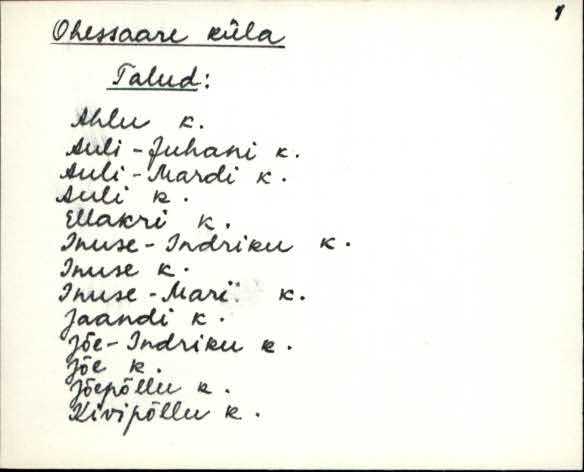 1
Ohessaare küla
Talud:
Ahlu k.
Auli-Juhani k.
Auli-Mardi k.
Auli k.
Ellakri k.
Inuse-Indriku k.
Inuse k.
Inuse-Marii k.
Jaandi k.
Jõe-Indriku k.
Jõe k.
Jõepõllu k.
Kivipõllu k.